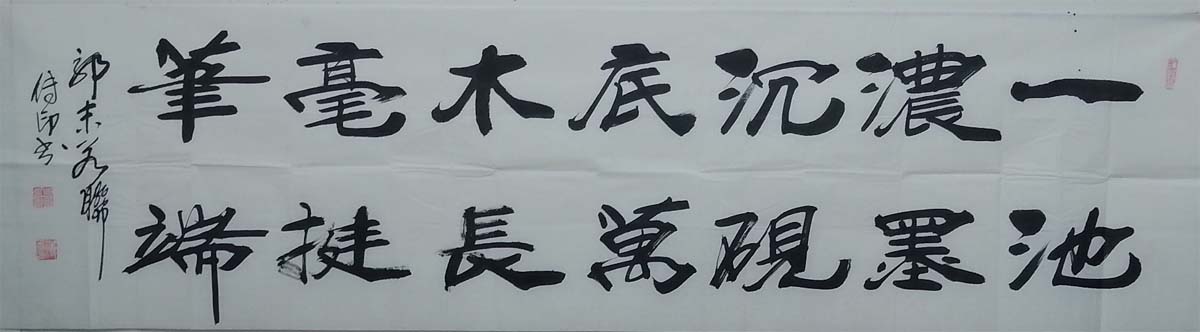 一池
濃墨
沉硯
底萬
木長
毫挺
筆端
郭末若聯